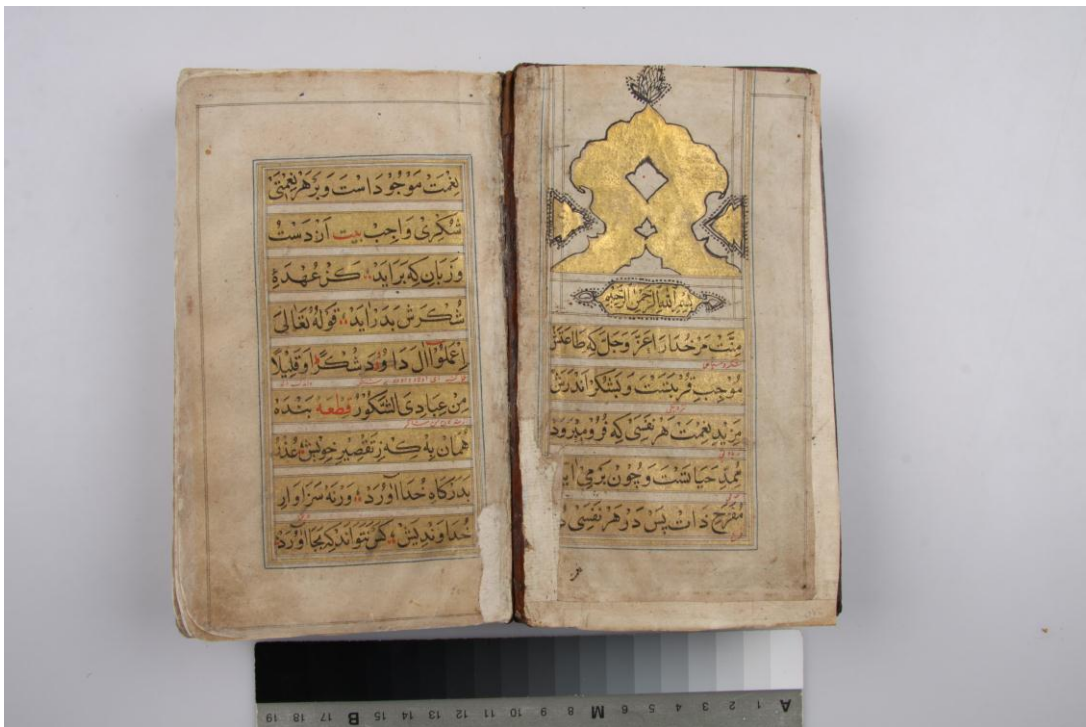 بسم الله الرحمن الرحیم
مِنَّت مَرْ خُدَا رَا عَزَّ وَجَلَّ کِه طَاعَتَش
مُوْجِبِ قُرْبَتَسْت وَ بِشُکْرْ اَنْدَرَش
مَزِیدِ نِعْمَت هَرْ نَفَسِیْ کِه فُرُوْ مِیْرَوَد
مُمِدِّ حَیَاتَسْت وَ چُوْن بَرْ مِیْ
مُفَرِّحِ ذَات پَس دَرْ هَرْ نَفَسِیْ
نِعْمَت مَوْجُوْد اَسْت وَ بَرْ هَرْ نِعْمَتِیْ
شُکْرِیْ وَاجِبْ بیت اَزْ دَسْت
وَ زَبَانِ کِه بَرَایَد کَزْ عُهْدَهٔ
شُکْرَشْ بَدَرْ اٰیَد قَوْلُهُ تَعَالٰی
اِعْمَلُوْا اٰلَ دَاوٗدَ شُکْرًا وَ قَلِیْلًا
مِنْ عِبَادِیَ الشَّکُوْرُ قِطْعَه بَنْدَه
هَمَانْ بِه کِه زِ تَقْصِیْرِ خوِیْش عُذْ
بَدَرْکَاهِ خُدَا اٰوَرَدْ وَرْنَه سَزَاوَارِ
خُدَاوَنْدِیَشْ کَسْ نَتَوَانَدْ کِه بَجَا اٰوَرَدْ
A 1 2 3 4 5 6 M 8 9 10 11 12 13 14 15 B 17 18 19